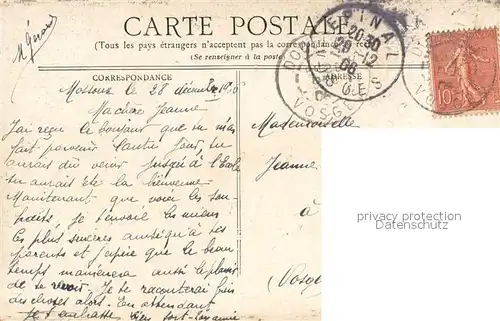 M Gerard
CARTE POSTALE
(Tous les pays étrangers n'acceptent pas la correspondance au recto
(Se renseigner à la poste)
CORRESPONDANCE
ADRESSE
EPINAL
20 30
29 -12
06
VOSGES
10
28 décembre 1906
Ma chère Jeanne
J'ai reçu le bonjour que tu m'as
fait parvenir l'autre jour, tu
aurais dû venir jusqu'à l'Ecole
tu aurais été la bienvenue
Maintenant que voici les sou-
haits, je t'envoie les miens
les plus sincères ainsi qu'à tes
parents et j'espère que le beau
temps ramènera aussi le plaisir
de se voir. Je te raconterai bien
des choses alors. En attendant
je t'embrasse bien fort. Ton amie
Mademoiselle
Jeanne
à
Vosges
privacy protection
Datenschutz